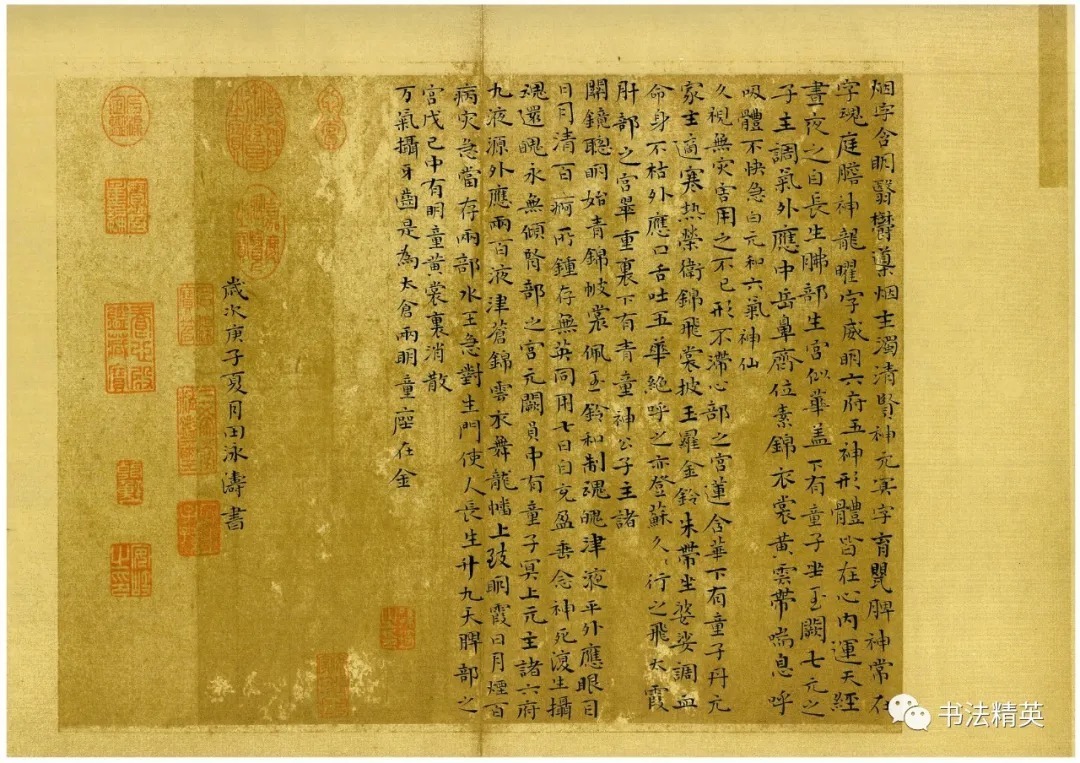 烟字含明翳鬱導烟主濁清腎神玄冥字育嬰脾神常在
字魂庭膽神龍曜字威明六府五神形體皆在心內運天經
晝夜之自長生肺部生宮似華蓋下有童子坐玉闕七元之
子主調氣外應中岳鼻齊位素錦衣裳黃雲帶喘息呼
吸體不快急白元和六氣神仙
久視無灾害用之不已形不滯心部之宮蓮含華下有童子丹元
家主適寒热榮衛錦飛裳披玉羅金鈴朱帶坐婆娑調血
命身不枯外應口舌吐五華絶呼之亦登蘇久〻行之飛太霞
肝部之宮翠重裏下有青童神公子主諸
關鏡聰明始青錦帔裳佩玉鈴和制魂魄津液平外應眼目
日月清百痾所鍾存無英同用七日自充盈垂念神死復生攝
魂還魄永無傾腎部之宮元闕員中有童子冥上元主諸六府
九液源外應兩百液津蒼錦雲衣舞龍幡上致明霞日月煙百
病灾急當存兩部水王急對生門使人長生升九天脾部之
宮戊己中有明童黃裳裏消散
万氣攝牙齒是為太倉兩明童座在金
歲次庚子夏月田泳濤書
书法精英